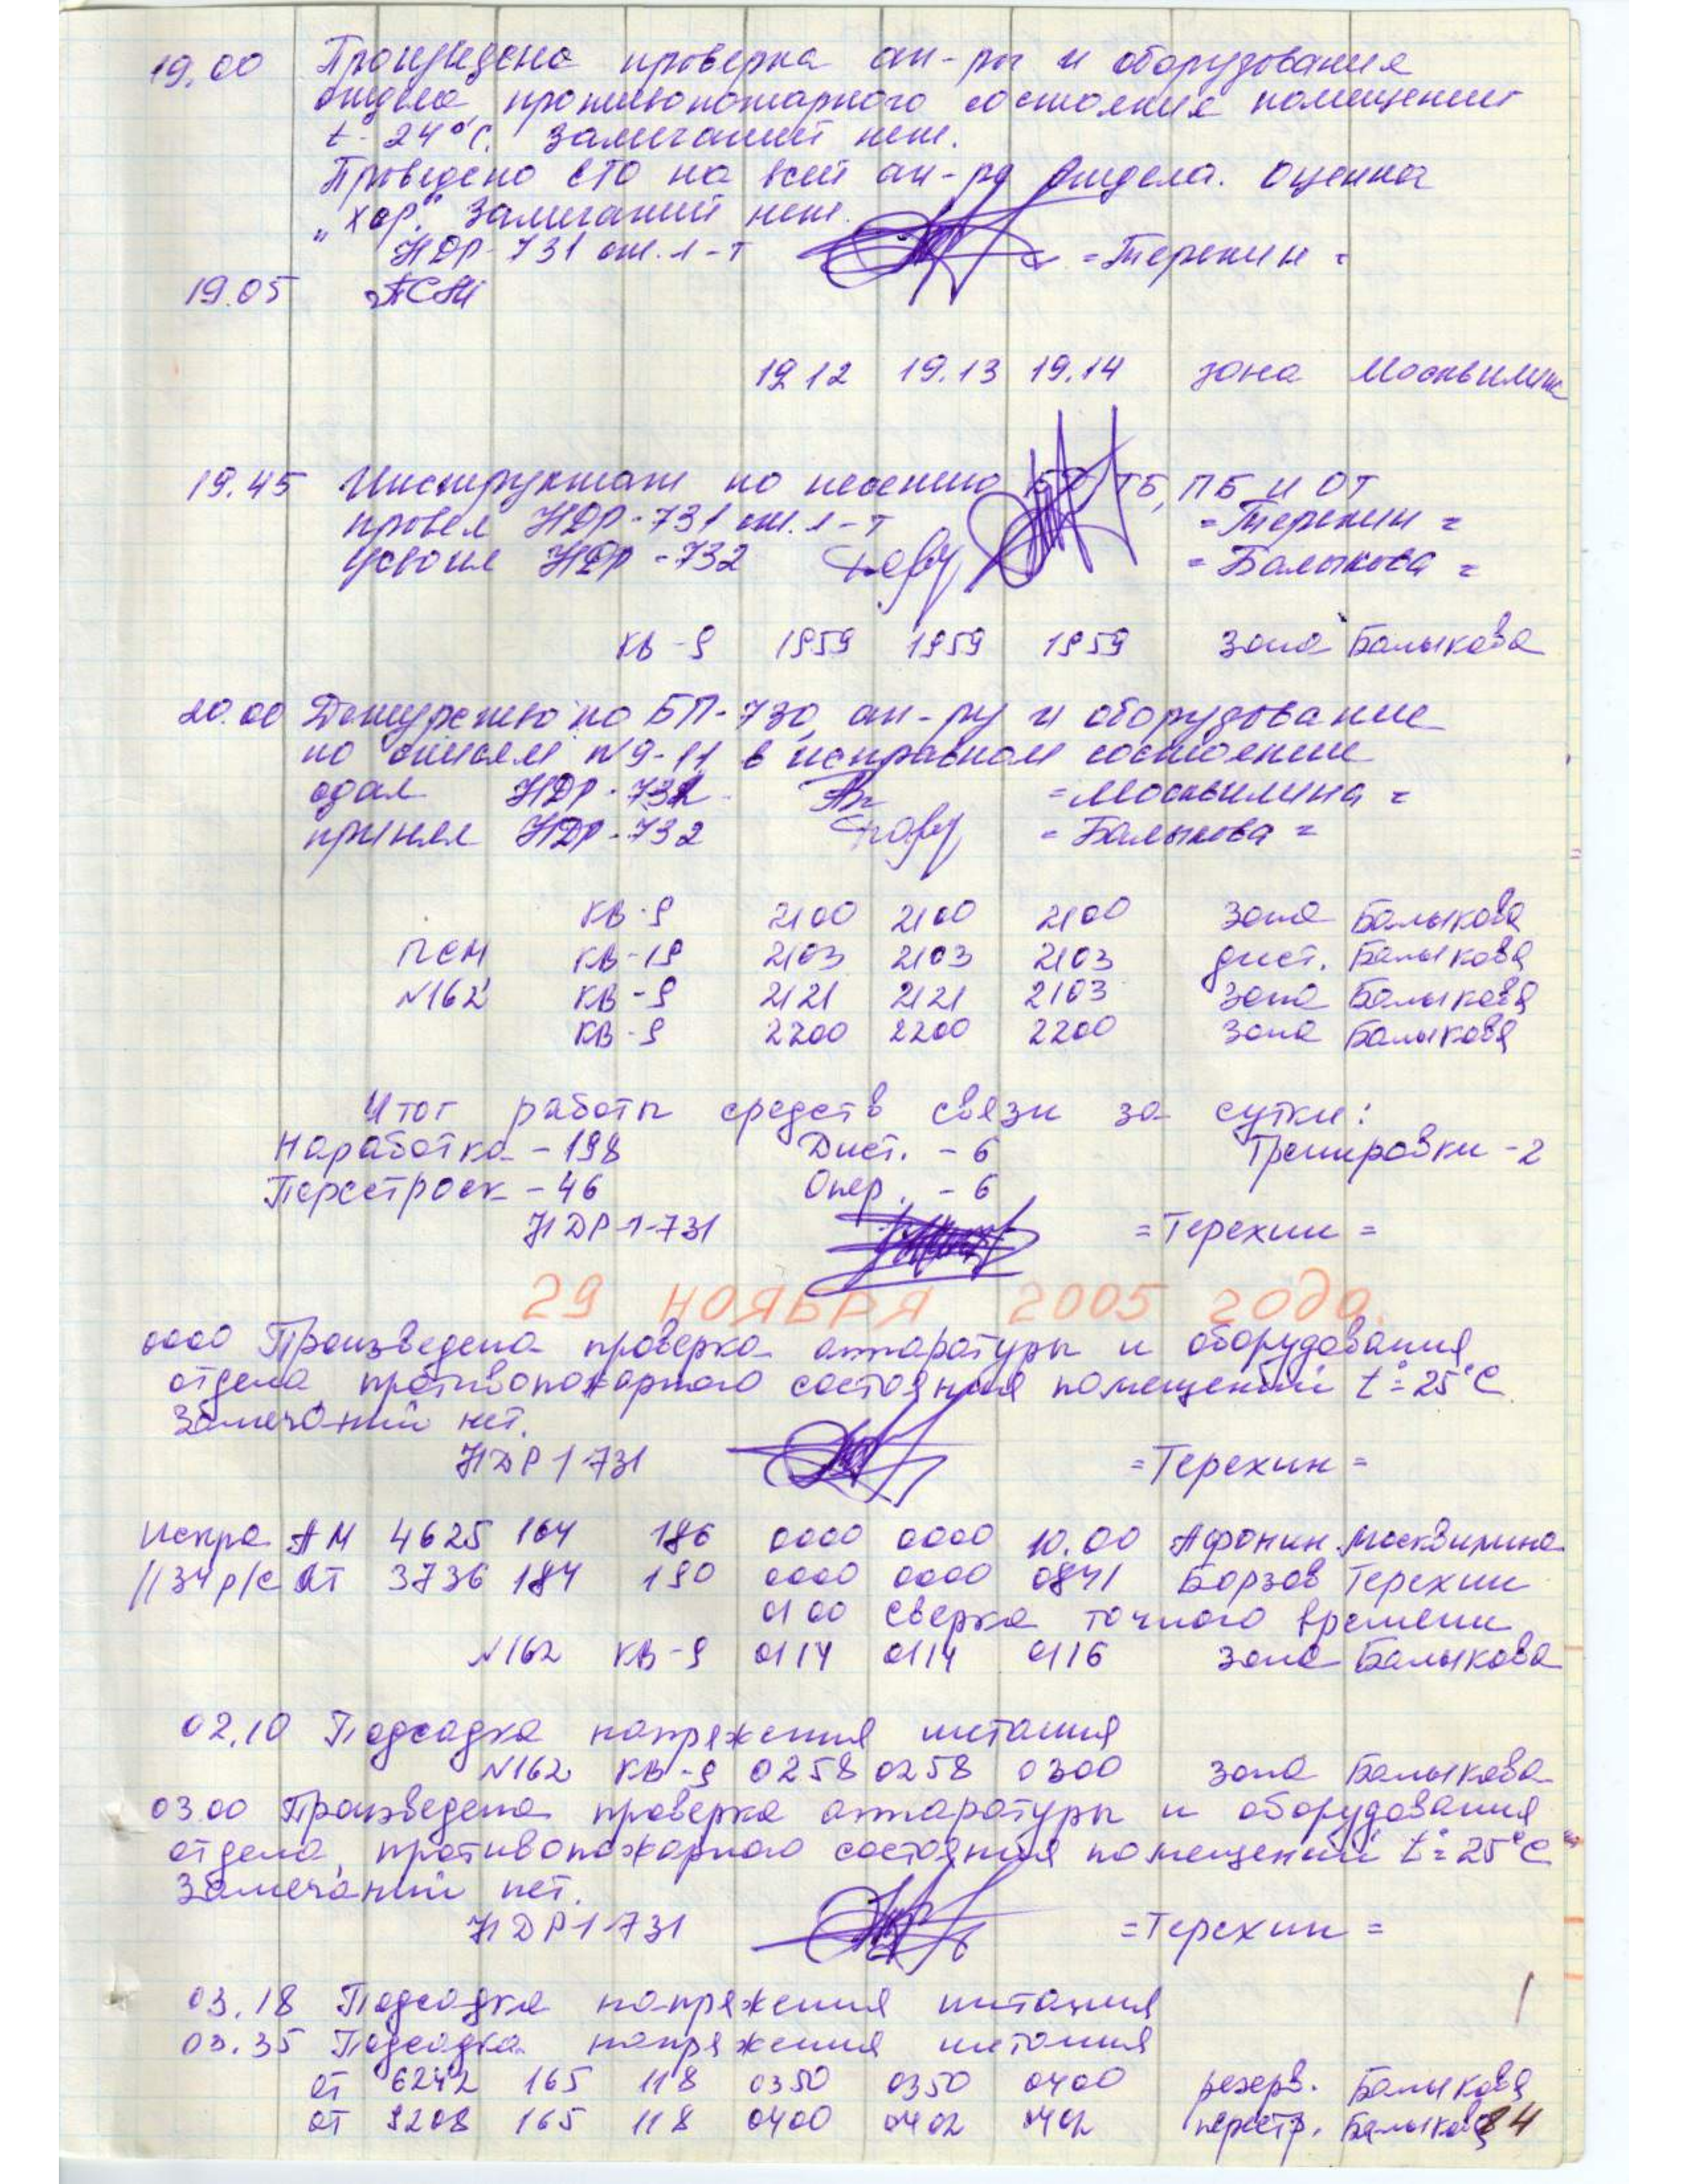 19.00 Произведена проверка ап-ры и оборудования
отдела противопожарного состояния помещений
t - 24°С. Замечаний нет.
Проведено ЕТО на всей ап-ре отдела. Оценка
„хор." Замечаний нет.
НДР-731 от. 1-т =Терехин=
19.05
19 12 19.13 19.14 зона Москвилина
19.45 Инструктаж по несению БД, ТБ, ПБ и ОТ
провел НДР-731 от. 1-т =Терехин=
усвоил НДР-732 =Балыкова=
КВ-9 1959 1959 1959 зона Балыкова
20.00 Дежурство по БП-730, ап-ру и оборудование
по описям №9-11 в исправном состоянии
сдал НДР-732 =Москвилина=
принял НДР-732 =Балыкова=
КВ-9 2100 2100 2100 зона Балыкова
ПСМ КВ-19 2103 2103 2103 дист. Балыкова
№162 КВ-9 2121 2121 2103 зона Балыкова
КВ-9 2200 2200 2200 зона Балыкова
Итог работы средств связи за сутки:
Наработка - 198 Дист. - 6 Тренировки - 2
Перестроек - 46 Опер. - 6
НДР-1-731 =Терехин=
29 НОЯБРЯ 2005 года.
0000 Произведена проверка аппаратуры и оборудования
отдела, противопожарного состояния помещений t°=25°С
Замечаний нет.
НДР 1-731 =Терехин=
Искра АМ 4625 164 186 0000 0000 10.00 Афонин Москвилина
//34 р/с АТ 3736 184 190 0000 0000 0841 Борзов Терехин
0100 сверка точного времени
№162 КВ-9 0114 0114 0116 зона Балыкова
02.10 Подсадка напряжения питания
№162 КВ-9 0258 0258 0300 зона Балыкова
03.00 Произведена проверка аппаратуры и оборудования
отдела, противопожарного состояния помещений t°=25°С
Замечаний нет.
НДР 1-731 =Терехин=
03.18 Подсадка напряжения питания
03.35 Подсадка напряжения питания
ат 6242 165 118 0350 0350 0400 резерв. Балыкова
ат 9208 165 118 0400 0402 0402 перестр. Балыкова
84